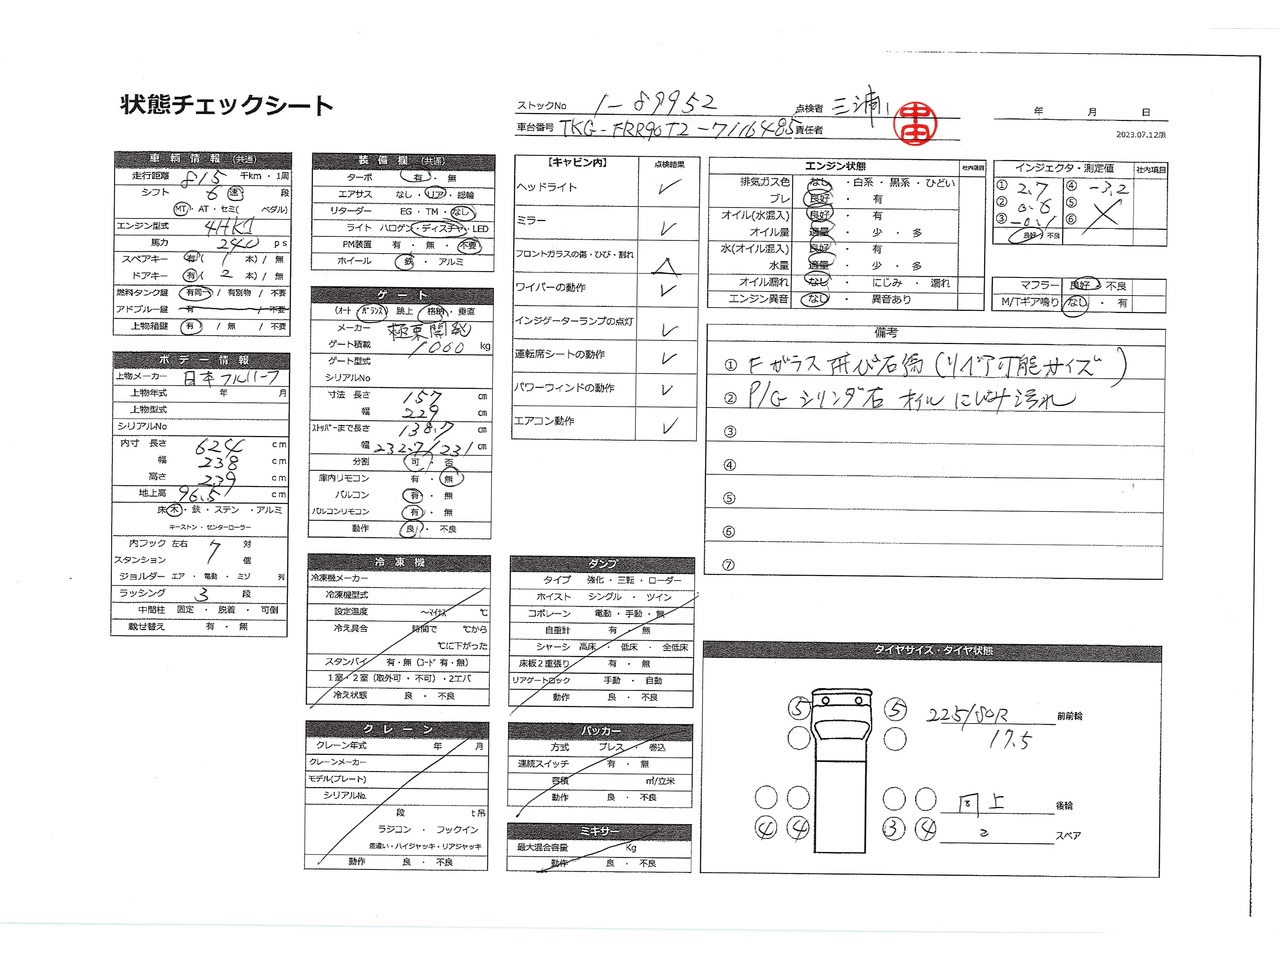 状態チェックシート
ストックNo 1-89952 点検者 三浦
車台番号 TKG-FRR90T2-7116485 責任者
年 月 日
2023.07.12版
車輌情報 (共通)
走行距離 815 千km・1周
シフト 6 速 段
MT・AT・セミ( ペダル)
エンジン型式 4HK1
馬力 240 ps
スペアキー 有( 1 本) / 無
ドアキー 有( 2 本) / 無
燃料タンク鍵 有同一 / 有別物 / 不要
アドブルー鍵 有 不要
上物箱鍵 有 / 無 / 不要
ボデー情報
上物メーカー 日本フルハーフ
上物年式 年 月
上物型式
シリアルNo
内寸 長さ 624 cm
幅 238 cm
高さ 239 cm
地上高 96.5 cm
床 木・鉄・ステン・アルミ
キーストン・センターローラー
内フック 左右 7 対
スタンション 個
ジョルダー エア・電動・ミゾ 列
ラッシング 3 段
中間柱 固定・脱着・可倒
載せ替え 有・無
装備欄 (共通)
ターボ 有・無
エアサス なし・リア・総輪
リターダー EG・TM・なし
ライト ハロゲン・ディスチャ・LED
PM装置 有・無・不要
ホイール 鉄・アルミ
ゲート
(オート バランス) 跳上 格納・垂直
メーカー 極東開発
ゲート積載 1000 kg
ゲート型式
シリアルNo
寸法 長さ 157 cm
幅 229 cm
ストッパーまで長さ 138.7 cm
幅 232.7/231 cm
分割 可・否
庫内リモコン 有・無
バルコン 有・無
バルコンリモコン 有・無
動作 良・不良
冷凍機
冷凍機メーカー
冷凍機型式
設定温度 ～マイナス ℃
冷え具合 時間で ℃から
℃に下がった
スタンバイ 有・無 (コード 有・無)
1室・2室 (取外可・不可)・2エバ
冷え状態 良・不良
クレーン
クレーン年式 年 月
クレーンメーカー
モデル(プレート)
シリアルNo.
段 t吊
ラジコン・フックイン
差違い・ハイジャッキ・リアジャッキ
動作 良・不良
【キャビン内】 点検結果
ヘッドライト ✓
ミラー ✓
フロントガラスの傷・ひび・割れ △
ワイパーの動作 ✓
インジゲーターランプの点灯 ✓
運転席シートの動作 ✓
パワーウィンドの動作 ✓
エアコン動作 ✓
ダンプ
タイプ 強化・三転・ローダー
ホイスト シングル・ツイン
コボレーン 電動・手動・無
自重計 有・無
シャーシ 高床・低床・全低床
床板2重張り 有・無
リアゲートロック 手動・自動
動作 良・不良
パッカー
方式 プレス・巻込
連続スイッチ 有・無
容積 ㎥/立米
動作 良・不良
ミキサー
最大混合容量 Kg
動作 良・不良
エンジン状態 社内項目
排気ガス色 なし・白系・黒系・ひどい
ブレ 良好・有
オイル(水混入) 良好・有
オイル量 適量・少・多
水(オイル混入) 良好・有
水量 適量・少・多
オイル漏れ なし・にじみ・漏れ
エンジン異音 なし・異音あり
インジェクタ・測定値 社内項目
① 2.7 ④ -3.2
② 0.6 ⑤
③ -0.1 ⑥
良好・不良
マフラー 良好・不良
M/Tギア鳴り なし・有
備考
① Fガラス 飛び石傷(リペア可能サイズ)
② P/G シリンダ右 オイルにじみ汚れ
③
④
⑤
⑥
⑦
タイヤサイズ・タイヤ状態
⑤ ⑤ 225/80R 前前輪
17.5
同上 後輪
④ ④ ③ ④ 2 スペア